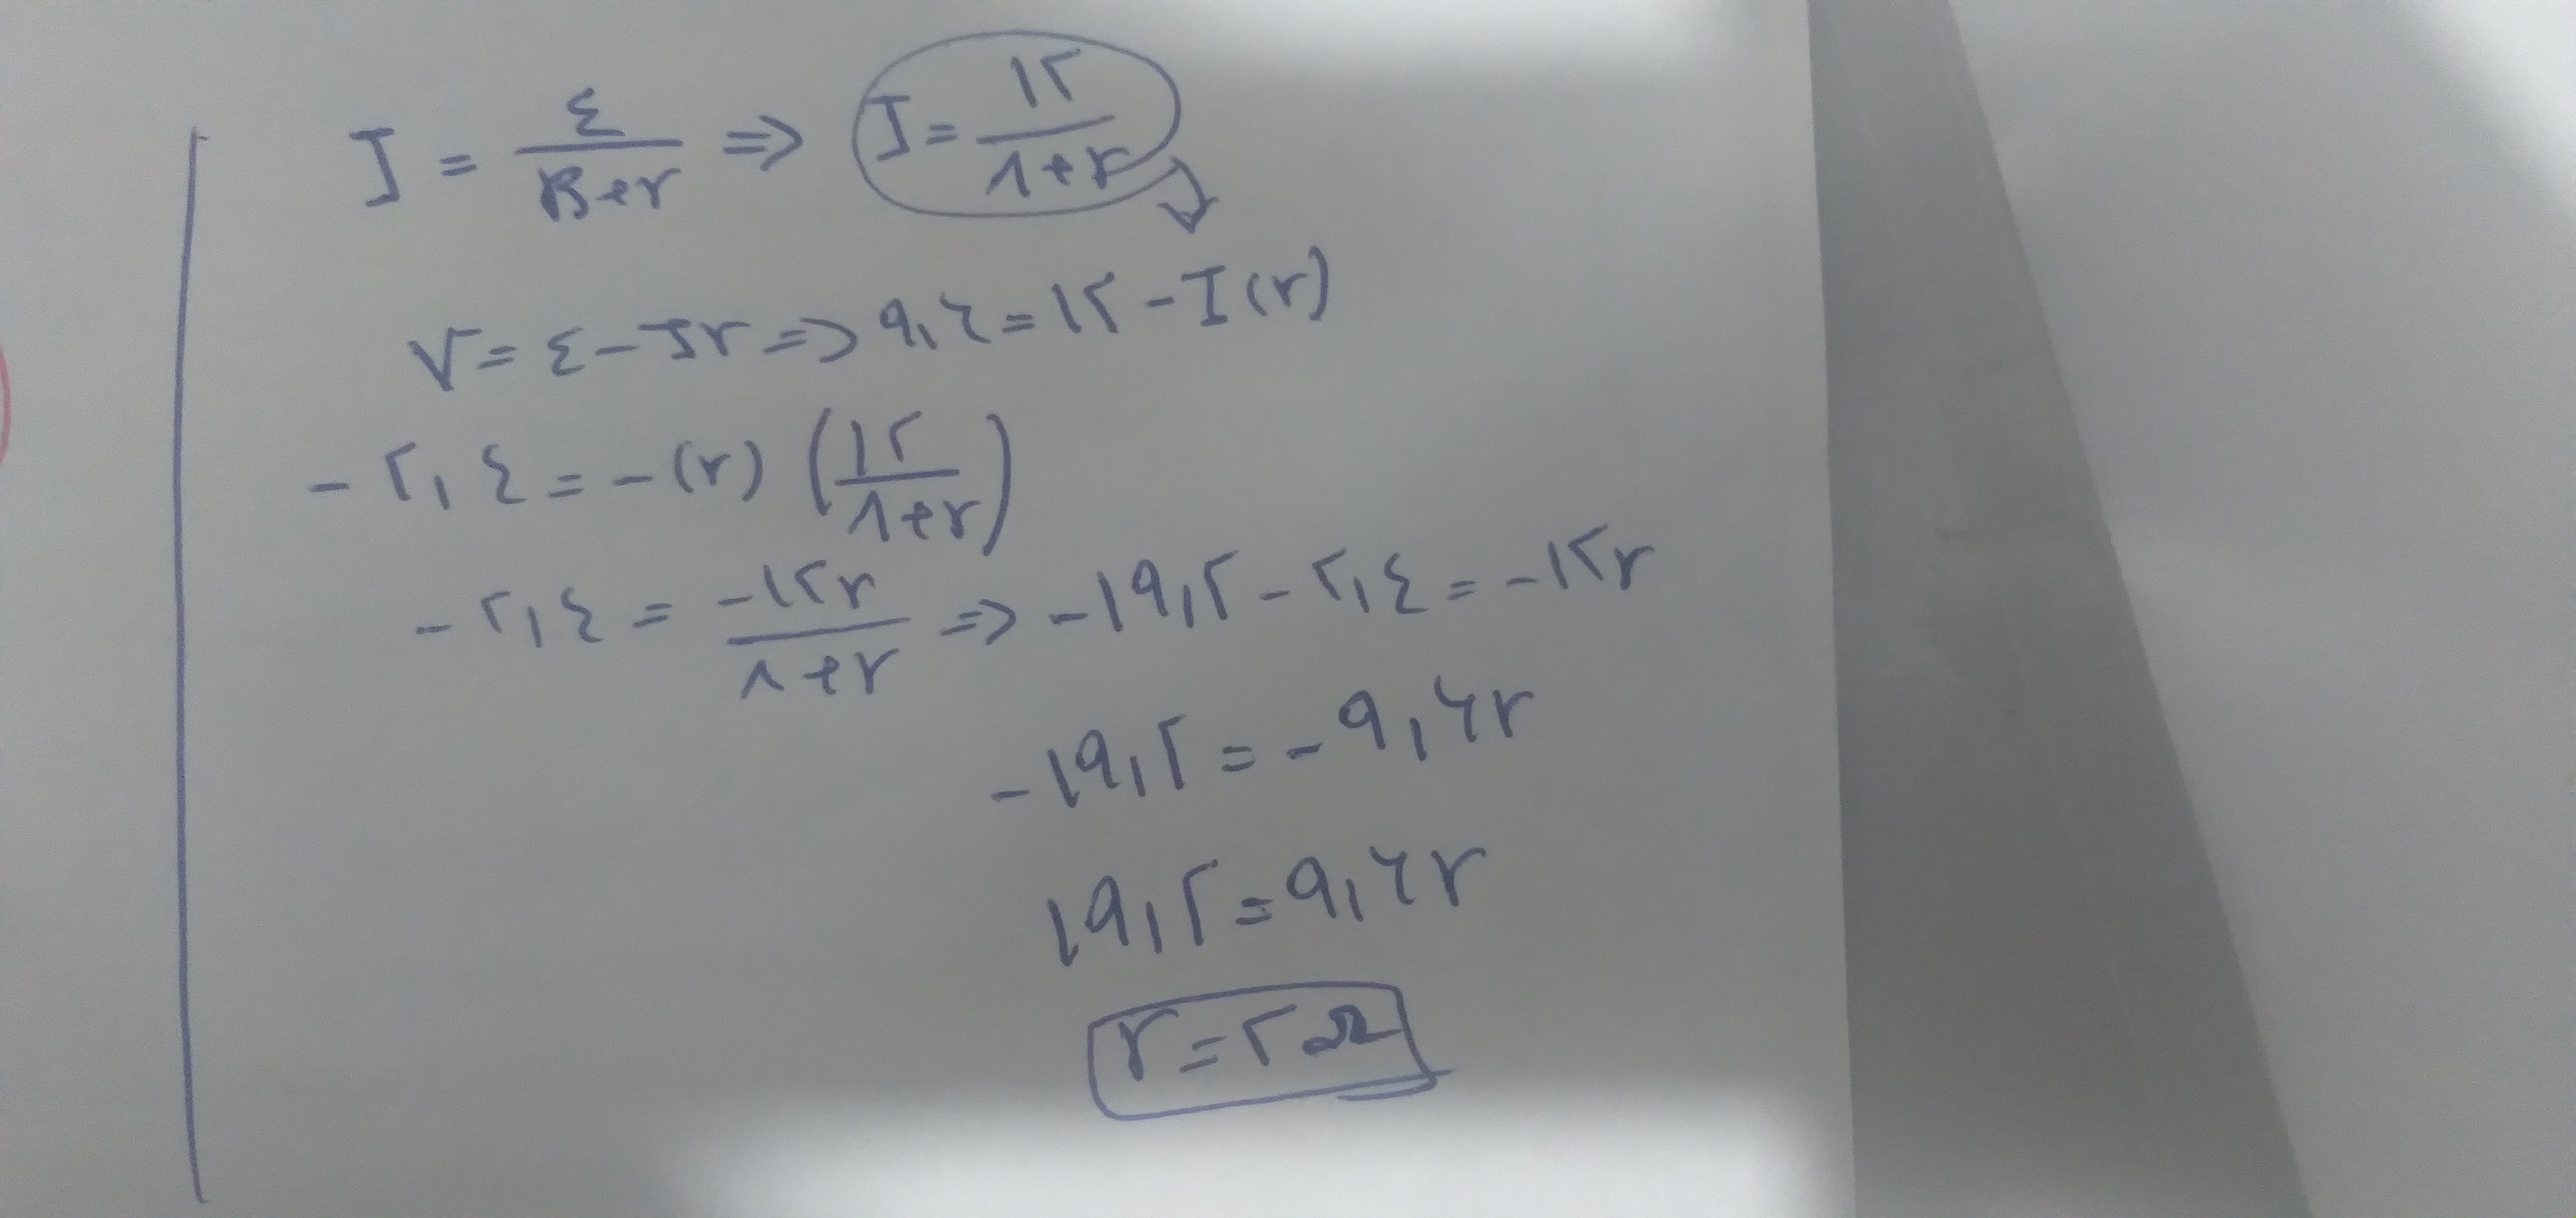 I = ε/R+r ⇒ I = ۱۲/۸+r
V = ε - Ir ⇒ ۹,۶ = ۱۲ - I(r)
-۲,٤ = -(r) (۱۲/۸+r)
-۲,٤ = -۱۲r/۸+r ⇒ -۱۹,۲ - ۲,٤ = -۱۲r
-۱۹,۲ = -۹,۶r
۱۹,۲ = ۹,۶r
r = ۲Ω